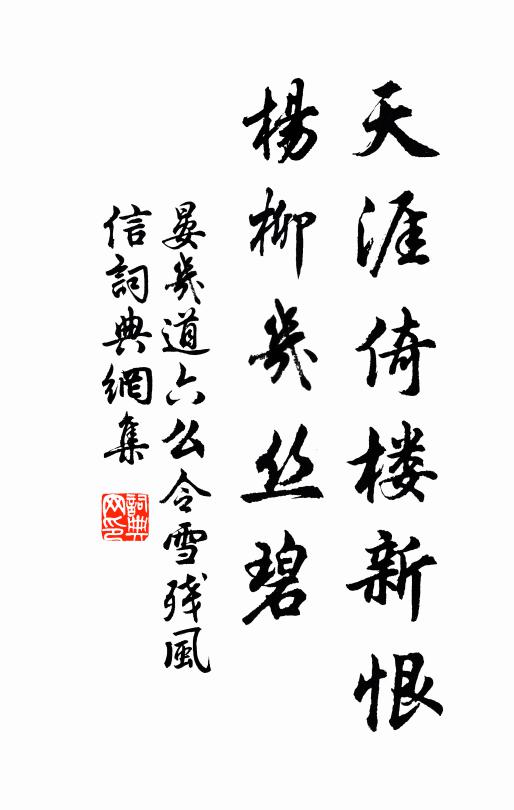 天涯倚楼新恨
楊柳幾丝碧
晏幾道六么令雪残風
信詞典網集
詞典
网印